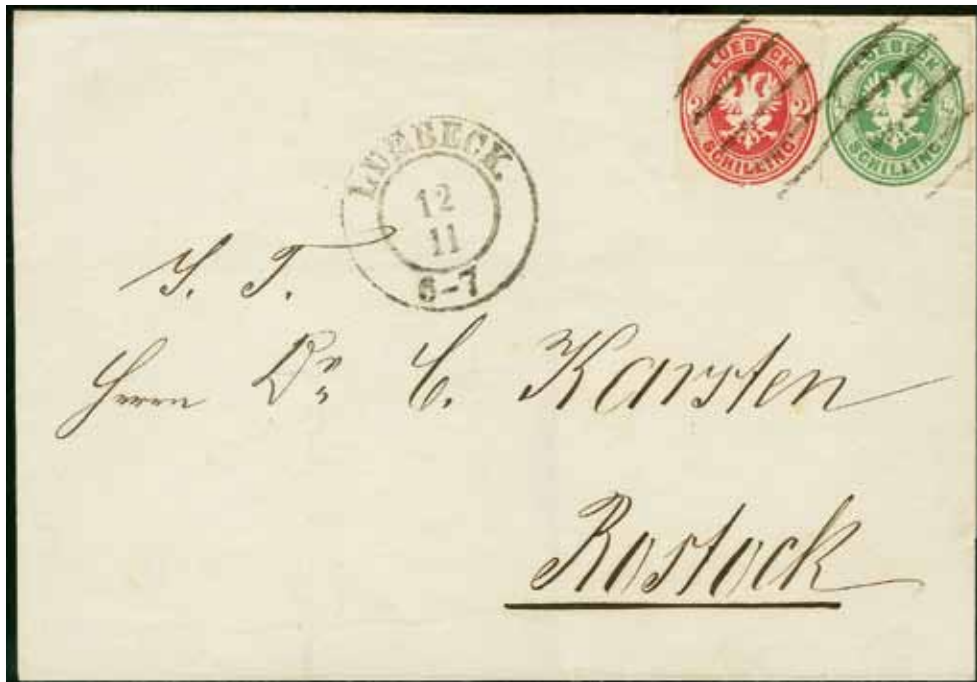 LUEBECK
2 2
SCHILLING
LUEBECK
SCHILLING
LUEBECK.
12
11
6-7
S. T.
Herrn Dr. C. Karsten
Rostock